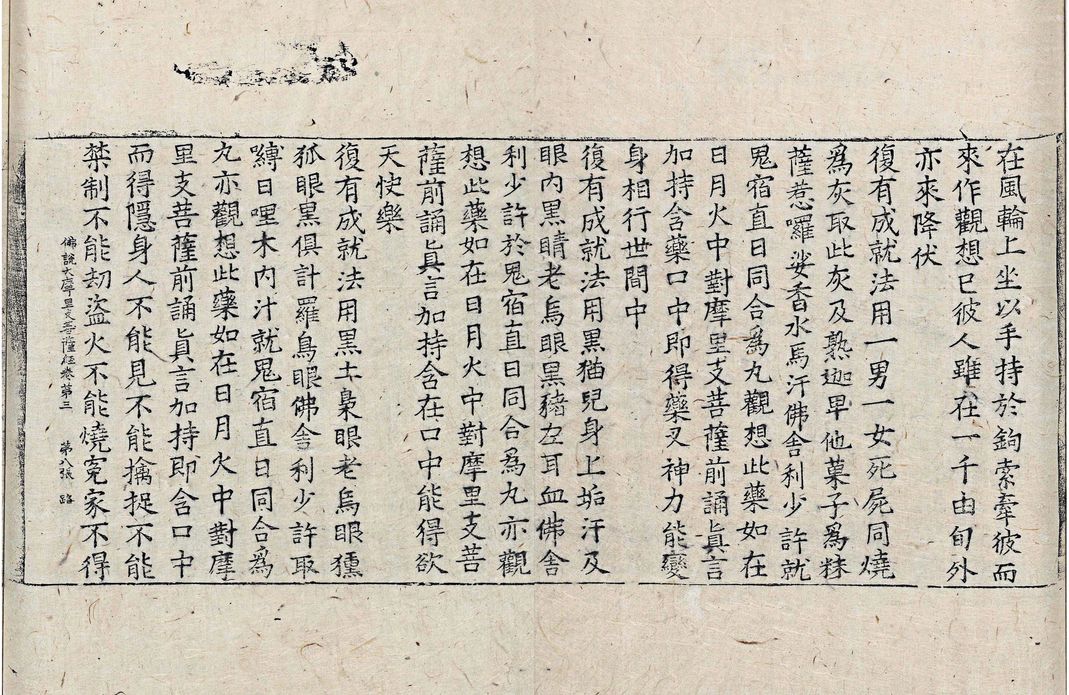 在風輪上坐以手持於鉤索牽彼而
來作觀想已彼人雖在一千由旬外
亦來降伏
復有成就法用一男一女死屍同燒
爲灰取此灰及熟迦卑他菓子爲粖
薩惹羅娑香水馬汗佛舍利少許就
鬼宿直日同合爲丸觀想此藥如在
日月火中對摩里支菩薩前誦眞言
加持含藥口中即得藥叉神力能變
身相行世間中
復有成就法用黒猫兒身上垢汗及
眼內黒睛老烏眼黒豬左耳血佛舍
利少許於鬼宿直日同合爲丸亦觀
想此藥如在日月火中對摩里支菩
薩前誦眞言加持含在口中能得欲
天快樂
復有成就法用黒土梟眼老烏眼獯
狐眼黒俱計羅鳥眼佛舍利少許取
嚩日哩木內汁就鬼宿直日同合爲
丸亦觀想此藥如在日月火中對摩
里支菩薩前誦眞言加持即含口中
而得隱身人不能見不能擒捉不能
禁制不能劫盜火不能燒冤家不得
佛說大摩里支菩薩経卷第三 第八張 路